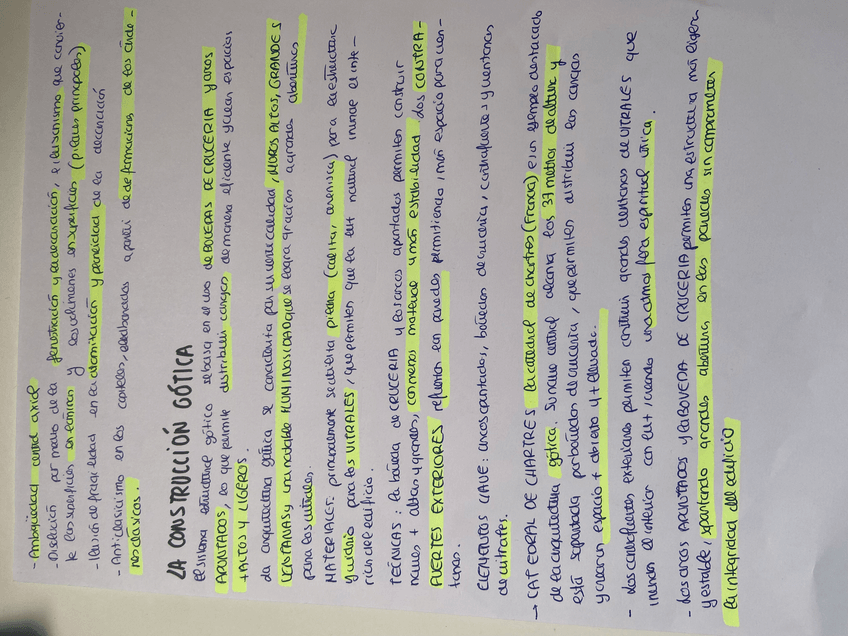 - Ambigüedad central axial
- Disolución por medio de la fenestración y la decoración, e ilusionismo que convier-
te las superficies en láminas y los volúmenes en superficies (pilares principales)
- Ilusión de fragilidad en la atomización y panelidad de la decoración
- Anticlasicismo en los capiteles, elaborados a partir de deformaciones de los órde-
nes clásicos.
LA CONSTRUCCIÓN GÓTICA
El sistema estructural gótico se basa en el uso de BÓVEDAS DE CRUCERÍA y arcos
APUNTADOS, lo que permite distribuir cargas de manera eficiente y crear espacios
+ ALTOS Y LIGEROS.
La arquitectura gótica se caracteriza por su verticalidad, MUROS ALTOS, GRANDES
VENTANAS y una notable LUMINOSIDAD que se logra gracias a grandes aberturas
para los vitrales.
MATERIALES: principalmente se utiliza piedra (caliza, arenisca) para la estructura
y vidrio para los VITRALES, que permiten que la luz natural inunde el inte-
rior del edificio.
TÉCNICAS: la bóveda de CRUCERÍA y los arcos apuntados permiten construir
naves + altas y grandes, con menos material y más estabilidad. Los CONTRA-
FUERTES EXTERIORES refuerzan las paredes permitiendo, más espacio para ven-
tanas.
ELEMENTOS CLAVE: arcos apuntados, bóvedas de crucería, contrafuertes y ventanas
de vitrales.
→ CATEDRAL DE CHARTRES La catedral de chartres (Francia) es un ejemplo destacado
de la arquitectura gótica. Su nave central alcanza los 37 metros de altura y
está soportada por bóvedas de crucería, que permiten distribuir las cargas
y crear un espacio + abierto y + elevado.
- Los contrafuertes exteriores permiten construir grandes ventanas de VITRALES que
inundan el interior con luz, creando una atmósfera espiritual única.
- Los arcos APUNTADOS y la BÓVEDA DE CRUCERÍA permiten una estructura más ligera
y estable, soportando grandes aberturas en las paredes sin comprometer
la integridad del edificio